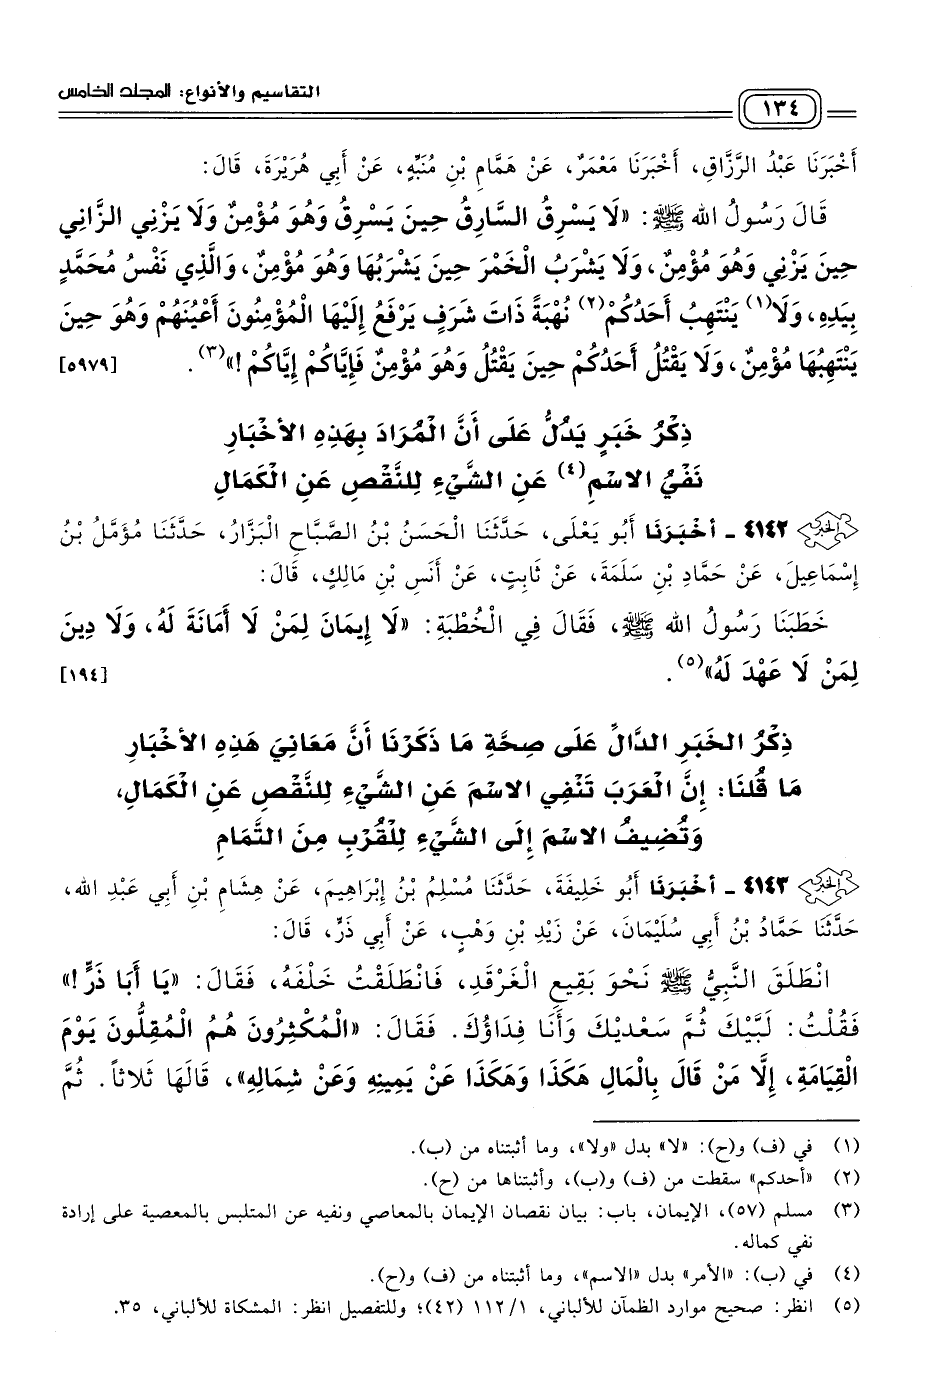 التقاسيم والأنواع: المجلد الخامس
١٣٤
أَخْبَرَنَا عَبْدُ الرَّزَّاقِ، أَخْبَرَنَا مَعْمَرٌ، عَنْ هَمَّامِ بْنِ مُنَبِّهٍ، عَنْ أَبِي هُرَيْرَةَ، قَالَ:
قَالَ رَسُولُ الله ﷺ: «لَا يَسْرِقُ السَّارِقُ حِينَ يَسْرِقُ وَهُوَ مُؤْمِنٌ وَلَا يَزْنِي الزَّانِي
حِينَ يَزْنِي وَهُوَ مُؤْمِنٌ، وَلَا يَشْرَبُ الْخَمْرَ حِينَ يَشْرَبُهَا وَهُوَ مُؤْمِنٌ، وَالَّذِي نَفْسُ مُحَمَّدٍ
بِيَدِهِ، وَلَا(١) يَنْتَهِبُ أَحَدُكُمْ(٢) نُهْبَةً ذَاتَ شَرَفٍ يَرْفَعُ إِلَيْهَا الْمُؤْمِنُونَ أَعْيُنَهُمْ وَهُوَ حِينَ
يَنْتَهِبُهَا مُؤْمِنٌ، وَلَا يَقْتُلُ أَحَدُكُمْ حِينَ يَقْتُلُ وَهُوَ مُؤْمِنٌ فَإِيَّاكُمْ إِيَّاكُمْ!»(٣). [٥٩٧٩]
ذِكْرُ خَبَرٍ يَدُلُّ عَلَى أَنَّ الْمُرَادَ بِهَذِهِ الأَخْبَارِ
نَفْيُ الاسْمِ(٤) عَنِ الشَّيْءِ لِلنَّقْصِ عَنِ الْكَمَالِ
٤١٤٢ - أَخْبَرَنَا أَبُو يَعْلَى، حَدَّثَنَا الْحَسَنُ بْنُ الصَّبَّاحِ الْبَزَّارُ، حَدَّثَنَا مُؤَمَّلُ بْنُ
إِسْمَاعِيلَ، عَنْ حَمَّادِ بْنِ سَلَمَةَ، عَنْ ثَابِتٍ، عَنْ أَنَسِ بْنِ مَالِكٍ، قَالَ:
خَطَبَنَا رَسُولُ الله ﷺ، فَقَالَ فِي الْخُطْبَةِ: «لَا إِيمَانَ لِمَنْ لَا أَمَانَةَ لَهُ، وَلَا دِينَ
لِمَنْ لَا عَهْدَ لَهُ»(٥). [١٩٤]
ذِكْرُ الخَبَرِ الدَّالِّ عَلَى صِحَّةِ مَا ذَكَرْنَا أَنَّ مَعَانِيَ هَذِهِ الأخْبَارِ
مَا قُلنَا: إِنَّ الْعَرَبَ تَنْفِي الاسْمَ عَنِ الشَّيْءِ لِلنَّقْصِ عَنِ الْكَمَالِ،
وَتُضِيفُ الاسْمَ إِلَى الشَّيْءِ لِلْقُرْبِ مِنَ التَّمَامِ
٤١٤٣ - أَخْبَرَنَا أَبُو خَلِيفَةَ، حَدَّثَنَا مُسْلِمُ بْنُ إِبْرَاهِيمَ، عَنْ هِشَامِ بْنِ أَبِي عَبْدِ الله،
حَدَّثَنَا حَمَّادُ بْنُ أَبِي سُلَيْمَانَ، عَنْ زَيْدِ بْنِ وَهْبٍ، عَنْ أَبِي ذَرٍّ، قَالَ:
انْطَلَقَ النَّبِيُّ ﷺ نَحْوَ بَقِيعِ الْغَرْقَدِ، فَانْطَلَقْتُ خَلْفَهُ، فَقَالَ: «يَا أَبَا ذَرٍّ!»
فَقُلْتُ: لَبَّيْكَ ثُمَّ سَعْدَيْكَ وَأَنَا فِدَاؤُكَ. فَقَالَ: «الْمُكْثِرُونَ هُمُ الْمُقِلُّونَ يَوْمَ
الْقِيَامَةِ، إِلَّا مَنْ قَالَ بِالْمَالِ هَكَذَا وَهَكَذَا عَنْ يَمِينِهِ وَعَنْ شِمَالِهِ»، قَالَهَا ثَلَاثاً. ثُمَّ
(١) في (ف) و(ح): «لا» بدل «ولا»، وما أثبتناه من (ب).
(٢) «أحدكم» سقطت من (ف) و(ب)، وأثبتناها من (ح).
(٣) مسلم (٥٧)، الإيمان، باب: بيان نقصان الإيمان بالمعاصي ونفيه عن المتلبس بالمعصية على إرادة
نفي كماله.
(٤) في (ب): «الأمر» بدل «الاسم»، وما أثبتناه من (ف) و(ح).
(٥) انظر: صحيح موارد الظمآن للألباني، ١/ ١١٢ (٤٢)؛ وللتفصيل انظر: المشكاة للألباني، ٣٥.